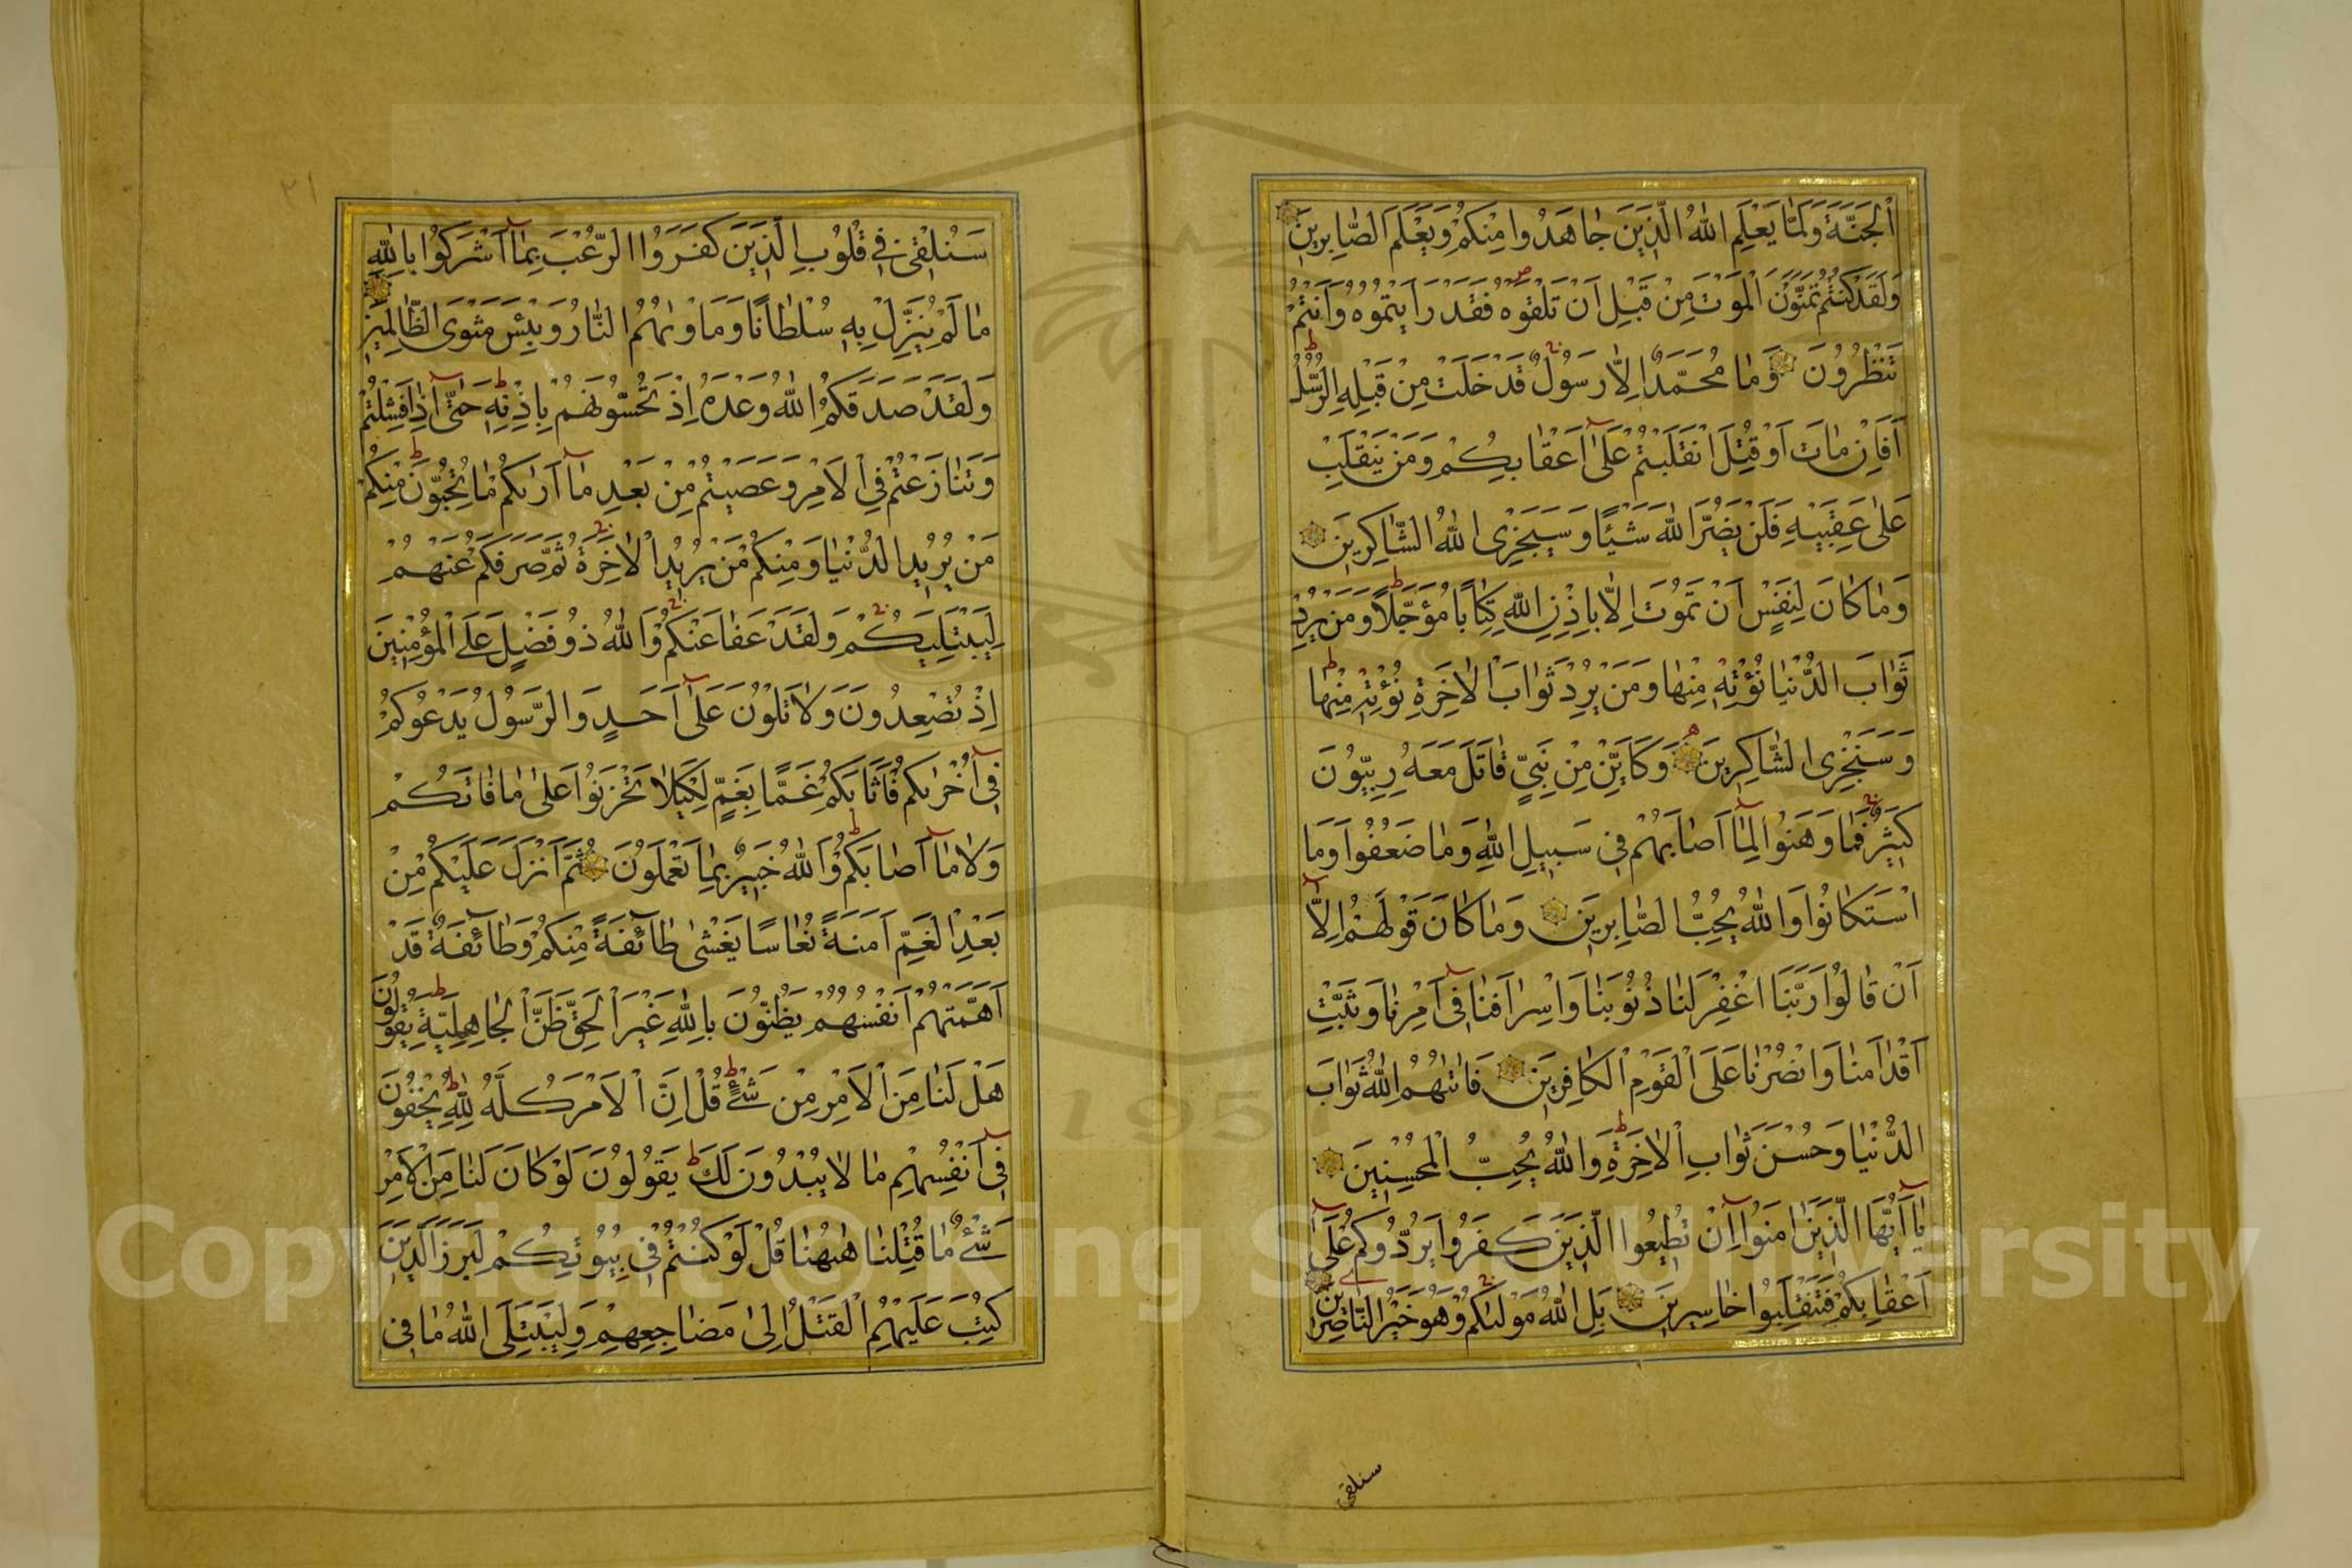 اَلْجَنَّةَ وَلَمَّا يَعْلَمِ اللّٰهُ الَّذِينَ جَاهَدُوا مِنْكُمْ وَيَعْلَمَ الصَّابِرِينَ
وَلَقَدْ كُنْتُمْ تَمَنَّوْنَ الْمَوْتَ مِنْ قَبْلِ اَنْ تَلْقَوْهُ فَقَدْ رَاَيْتُمُوهُ وَاَنْتُمْ
تَنْظُرُونَ وَمَا مُحَمَّدٌ اِلَّا رَسُولٌ قَدْ خَلَتْ مِنْ قَبْلِهِ الرُّسُلُ
اَفَاِنْ مَاتَ اَوْ قُتِلَ انْقَلَبْتُمْ عَلٰٓى اَعْقَابِكُمْ وَمَنْ يَنْقَلِبْ
عَلٰى عَقِبَيْهِ فَلَنْ يَضُرَّ اللّٰهَ شَيْئًا وَسَيَجْزِى اللّٰهُ الشَّاكِرِينَ
وَمَا كَانَ لِنَفْسٍ اَنْ تَمُوتَ اِلَّا بِاِذْنِ اللّٰهِ كِتَابًا مُؤَجَّلًا وَمَنْ يُرِدْ
ثَوَابَ الدُّنْيَا نُؤْتِهِ مِنْهَا وَمَنْ يُرِدْ ثَوَابَ الْاٰخِرَةِ نُؤْتِهِ مِنْهَا
وَسَنَجْزِى الشَّاكِرِينَ وَكَاَيِّنْ مِنْ نَبِىٍّ قَاتَلَ مَعَهُ رِبِّيُّونَ
كَثِيرٌ فَمَا وَهَنُوا لِمَٓا اَصَابَهُمْ فِى سَبِيلِ اللّٰهِ وَمَا ضَعُفُوا وَمَا
اسْتَكَانُوا وَاللّٰهُ يُحِبُّ الصَّابِرِينَ وَمَا كَانَ قَوْلَهُمْ اِلَّٓا
اَنْ قَالُوا رَبَّنَا اغْفِرْ لَنَا ذُنُوبَنَا وَاِسْرَافَنَا فِٓى اَمْرِنَا وَثَبِّتْ
اَقْدَامَنَا وَانْصُرْنَا عَلَى الْقَوْمِ الْكَافِرِينَ فَاٰتٰيهُمُ اللّٰهُ ثَوَابَ
الدُّنْيَا وَحُسْنَ ثَوَابِ الْاٰخِرَةِ وَاللّٰهُ يُحِبُّ الْمُحْسِنِينَ
يَٓا اَيُّهَا الَّذِينَ اٰمَنُٓوا اِنْ تُطِيعُوا الَّذِينَ كَفَرُوا يَرُدُّوكُمْ عَلٰٓى
اَعْقَابِكُمْ فَتَنْقَلِبُوا خَاسِرِينَ بَلِ اللّٰهُ مَوْلٰيكُمْ وَهُوَ خَيْرُ النَّاصِرِينَ
سنلقى
٢١
سَنُلْقِى فِى قُلُوبِ الَّذِينَ كَفَرُوا الرُّعْبَ بِمَٓا اَشْرَكُوا بِاللّٰهِ
مَا لَمْ يُنَزِّلْ بِهِ سُلْطَانًا وَمَاْوٰيهُمُ النَّارُ وَبِئْسَ مَثْوَى الظَّالِمِينَ
وَلَقَدْ صَدَقَكُمُ اللّٰهُ وَعْدَهُ اِذْ تَحُسُّونَهُمْ بِاِذْنِهِ حَتّٰٓى اِذَا فَشِلْتُمْ
وَتَنَازَعْتُمْ فِى الْاَمْرِ وَعَصَيْتُمْ مِنْ بَعْدِ مَٓا اَرٰيكُمْ مَا تُحِبُّونَ مِنْكُمْ
مَنْ يُرِيدُ الدُّنْيَا وَمِنْكُمْ مَنْ يُرِيدُ الْاٰخِرَةَ ثُمَّ صَرَفَكُمْ عَنْهُمْ
لِيَبْتَلِيَكُمْ وَلَقَدْ عَفَا عَنْكُمْ وَاللّٰهُ ذُو فَضْلٍ عَلَى الْمُؤْمِنِينَ
اِذْ تُصْعِدُونَ وَلَا تَلْوُونَ عَلٰٓى اَحَدٍ وَالرَّسُولُ يَدْعُوكُمْ
فِٓى اُخْرٰيكُمْ فَاَثَابَكُمْ غَمًّا بِغَمٍّ لِكَيْلَا تَحْزَنُوا عَلٰى مَا فَاتَكُمْ
وَلَا مَٓا اَصَابَكُمْ وَاللّٰهُ خَبِيرٌ بِمَا تَعْمَلُونَ ثُمَّ اَنْزَلَ عَلَيْكُمْ مِنْ
بَعْدِ الْغَمِّ اَمَنَةً نُعَاسًا يَغْشٰى طَٓائِفَةً مِنْكُمْ وَطَٓائِفَةٌ قَدْ
اَهَمَّتْهُمْ اَنْفُسُهُمْ يَظُنُّونَ بِاللّٰهِ غَيْرَ الْحَقِّ ظَنَّ الْجَاهِلِيَّةِ يَقُولُونَ
هَلْ لَنَا مِنَ الْاَمْرِ مِنْ شَىْءٍ قُلْ اِنَّ الْاَمْرَ كُلَّهُ لِلّٰهِ يُخْفُونَ
فِٓى اَنْفُسِهِمْ مَا لَا يُبْدُونَ لَكَ يَقُولُونَ لَوْ كَانَ لَنَا مِنَ الْاَمْرِ
شَىْءٌ مَا قُتِلْنَا هٰهُنَا قُلْ لَوْ كُنْتُمْ فِى بُيُوتِكُمْ لَبَرَزَ الَّذِينَ
كُتِبَ عَلَيْهِمُ الْقَتْلُ اِلٰى مَضَاجِعِهِمْ وَلِيَبْتَلِىَ اللّٰهُ مَا فِى
Copyright © King Saud University
1957